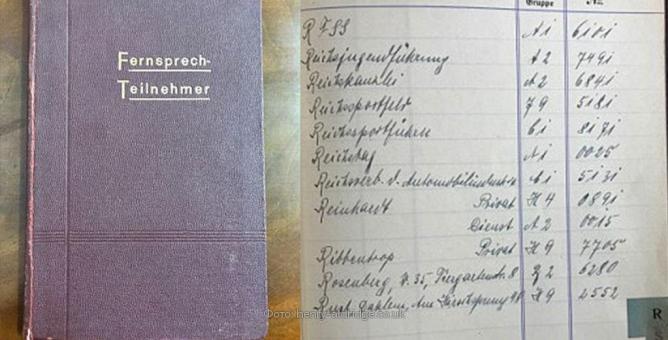 Fernsprech-
Teilnehmer
Gruppe No.
R F SS A 1 6101
Reichsjugendführung A 2 7491
Reichskanzlei A 2 6841
Reichssportfeld J 9 5181
Reichssportführer C 1 8171
Reichstag A 1 0025
Reichsverb. d. Automobilindustrie A 1 5131
Reinhardt Privat H 4 0891
Dienst A 2 0015
Ribbentrop Privat H 9 7705
Rosenberg, W. 35, Tiergartenstr. 8 B 2 6280
Rust, Dahlem, Am Hirschsprung H 9 2552
R
Фото: henry-aldridge.co.uk